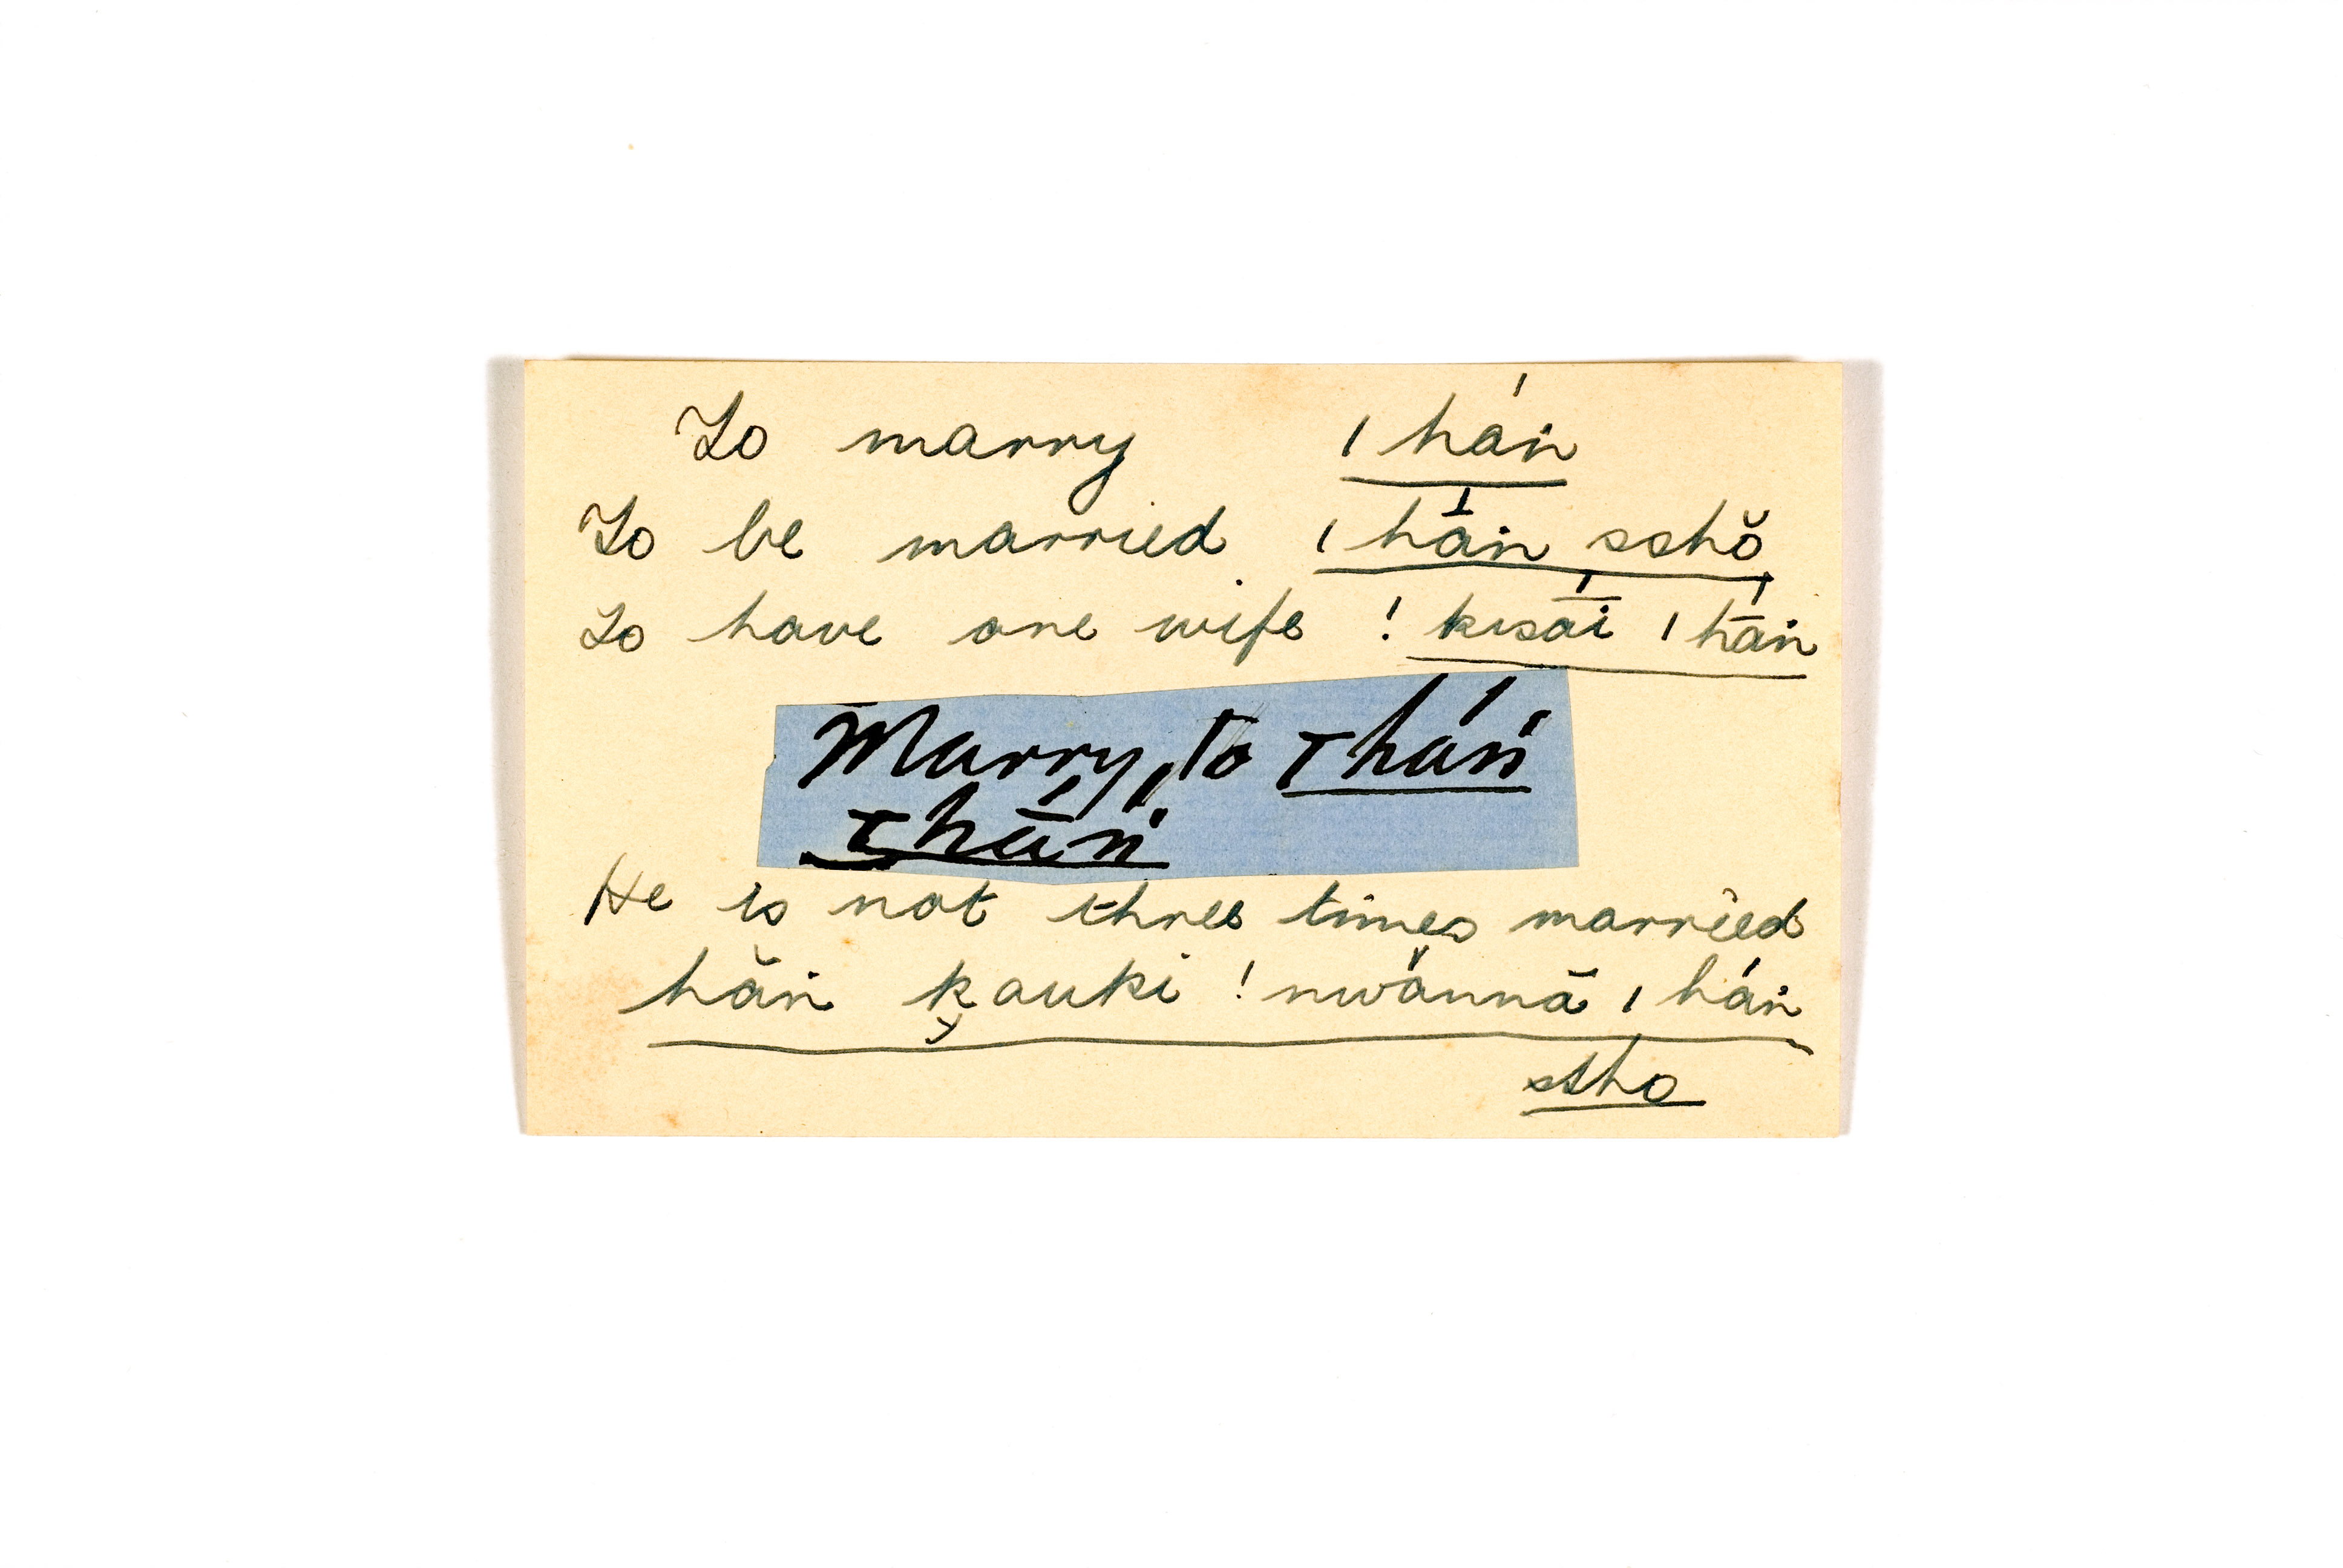 To marry ǀhá́ṅ
To be married ǀhā́ṅ sshŏ
To have one wife ! kısā́i ǀhā́ṅ
Marry, to ꞮháṄ
Ɪhā́ṅ
He is not three times married
hăṅ k̬auki ! nwănnā ǀháṅ
stho